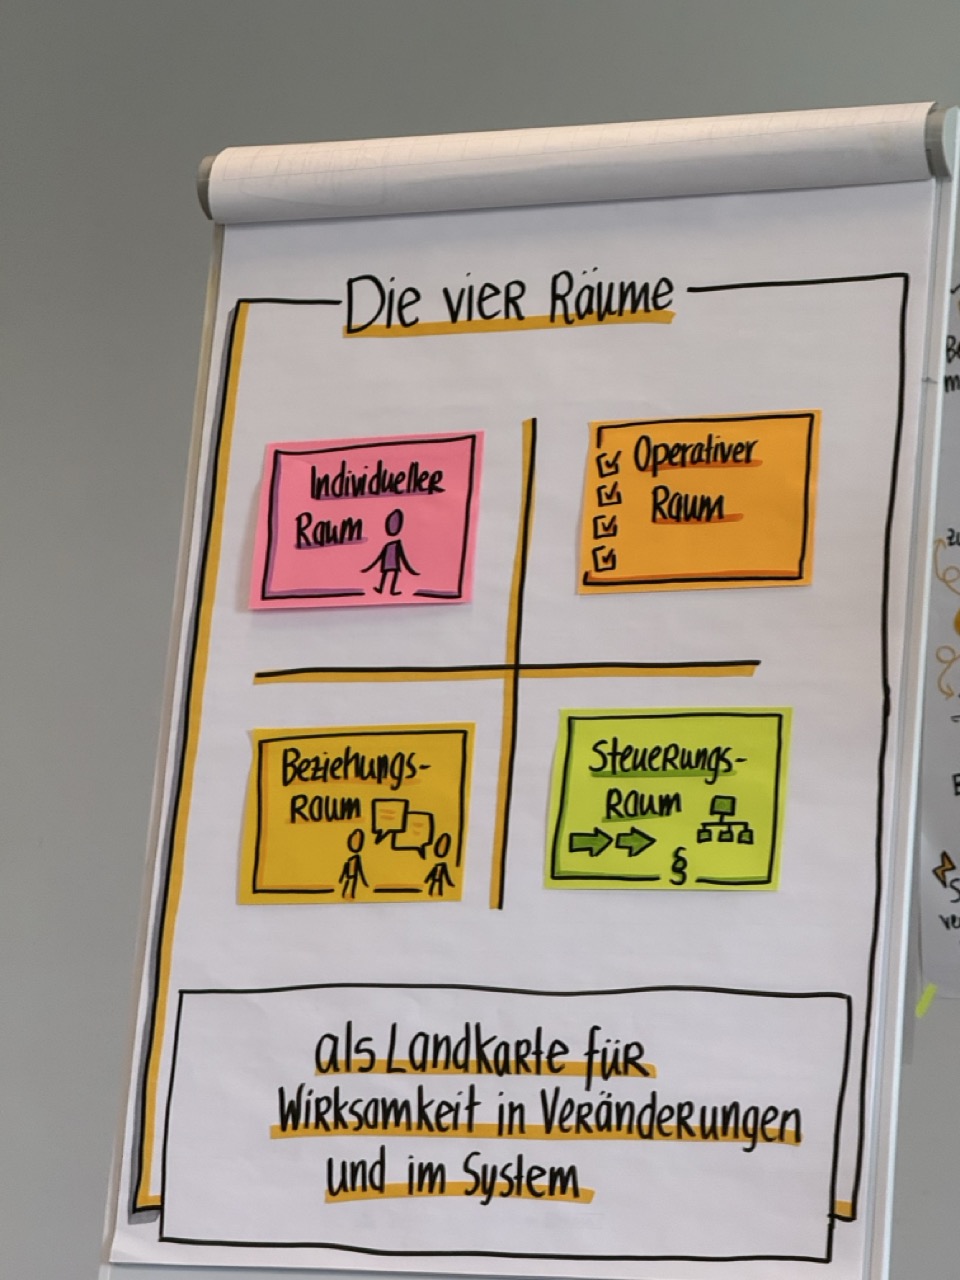 Die vier Räume
Individueller
Raum
Operativer
Raum
Beziehungs-
Raum
Steuerungs-
Raum
§
als Landkarte für
Wirksamkeit in Veränderungen
und im System